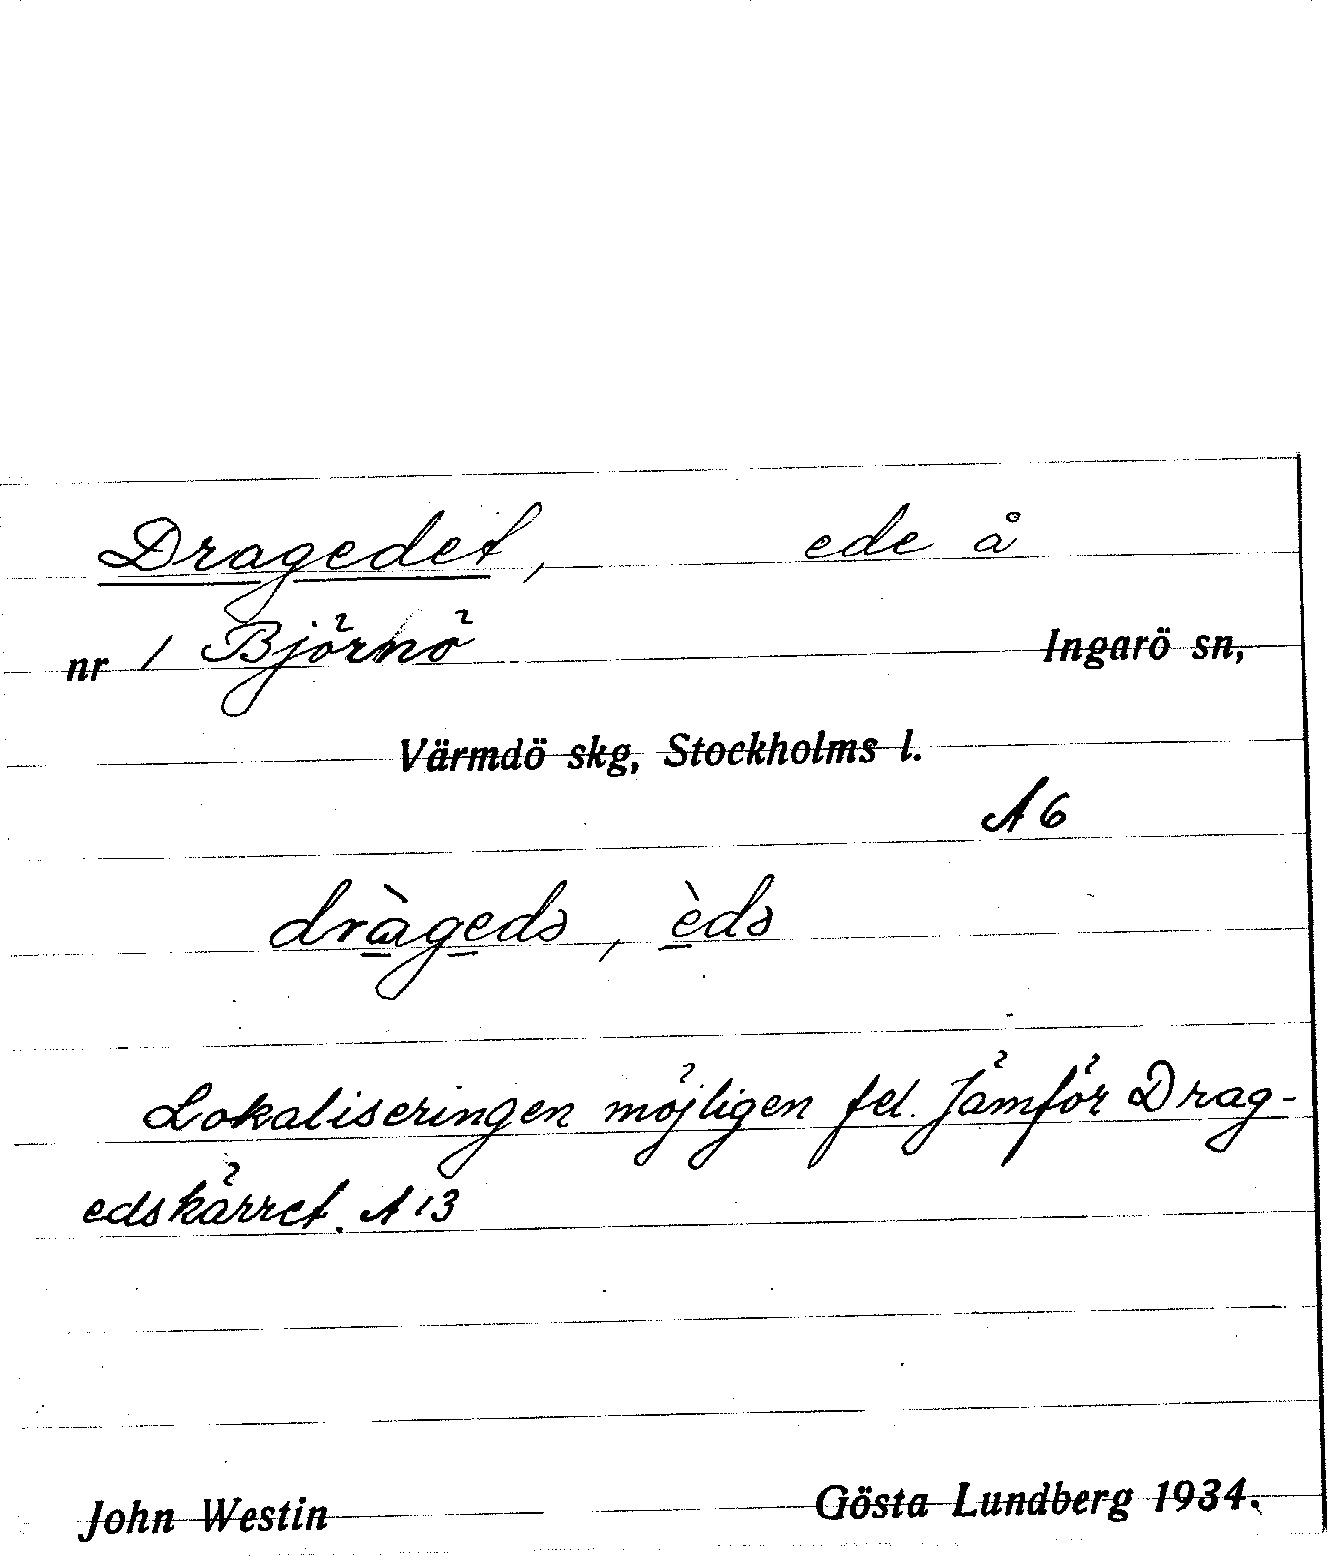 Dragedet, ede å
nr 1 Björnö Ingarö sn,
Värmdö skg, Stockholms l.
A 6
dràgedə, èdə
Lokaliseringen möjligen fel. Jämför Drag-
edskärret. A 13
John Westin Gösta Lundberg 1934.